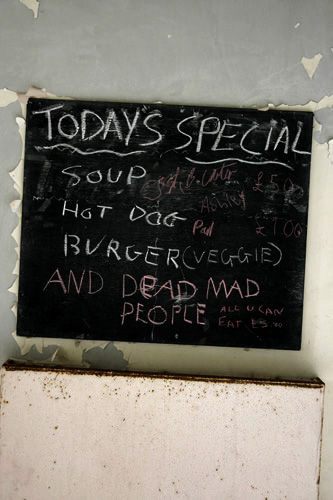 TODAY'S SPECIAL
SOUP £5.00
HOT DOG £1.00
BURGER (VEGGIE)
AND DEAD MAD
PEOPLE ALL U CAN
EAT £5.70